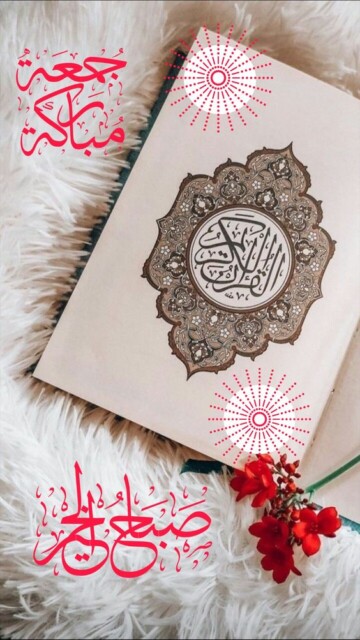 جُمعَة
مُباركَة
القرآن الكريم
صَبَاحُ الخَير